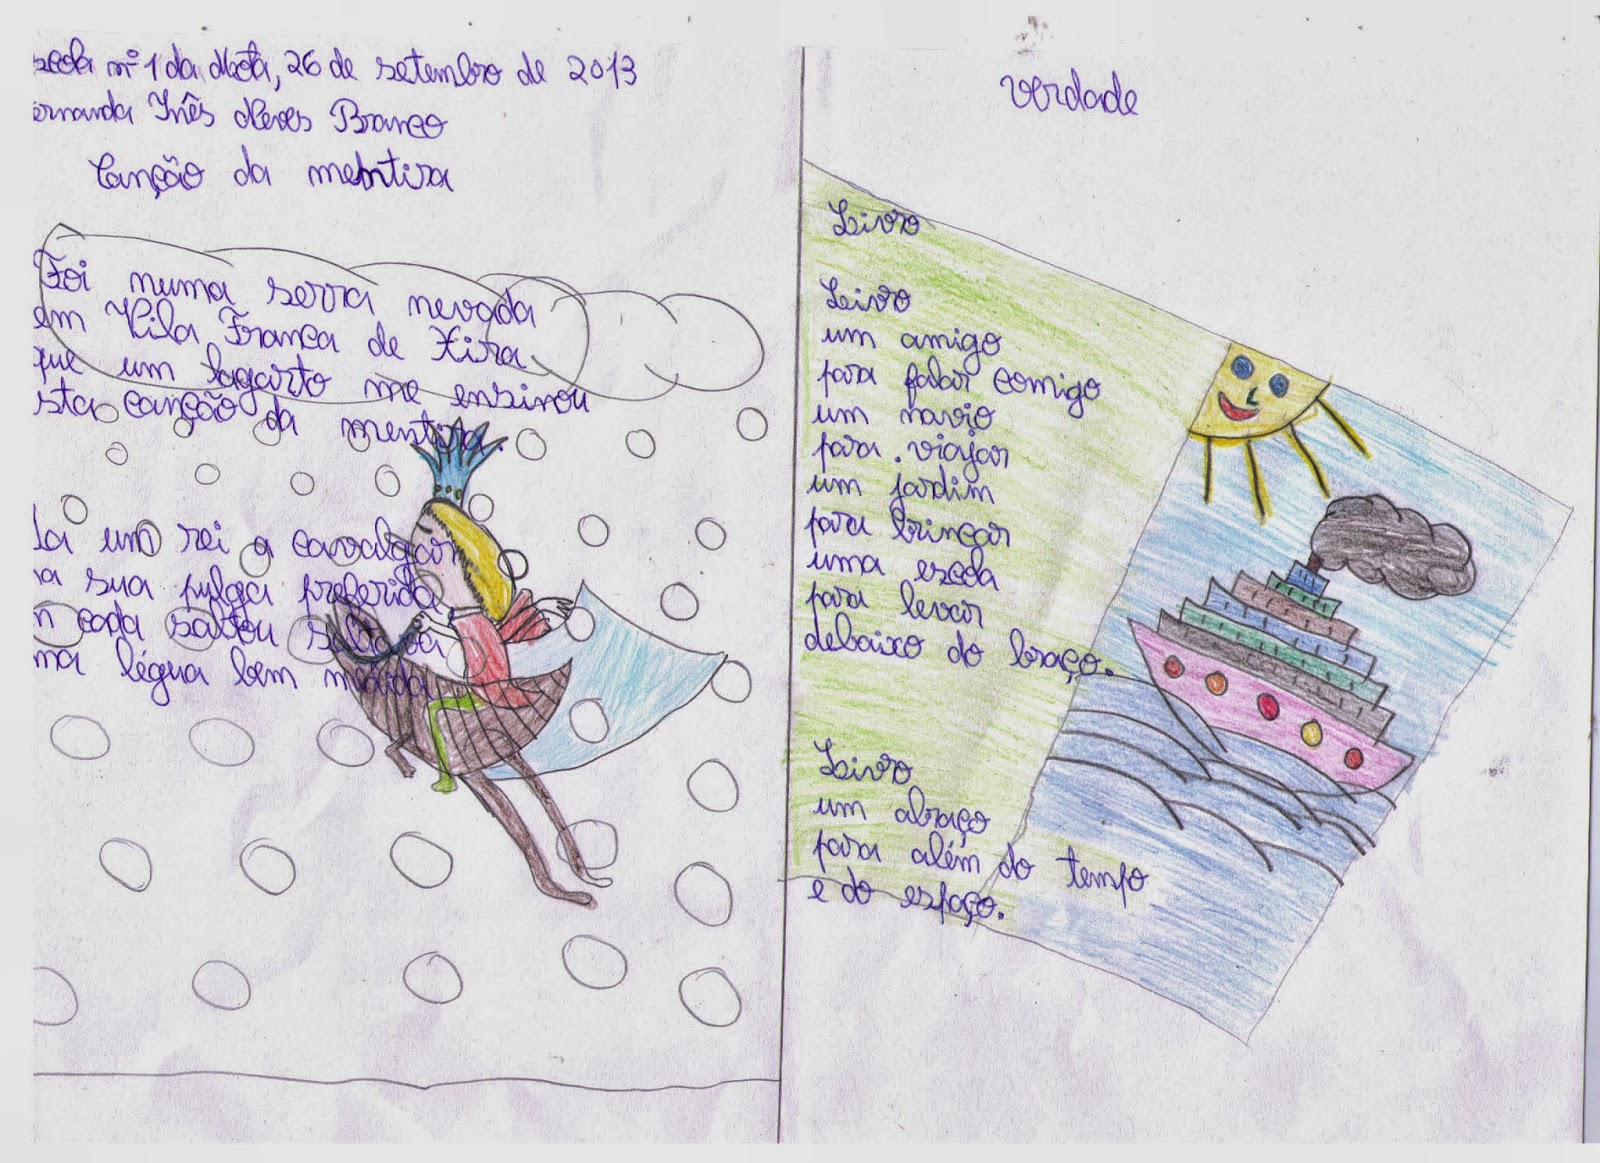 scola nº 1 da Meta, 26 de setembro de 2013
ernanda Inês Neves Branco
Canção da mentira
Foi numa serra nevada
em Vila Franca de Xira
que um lagarto me ensinou
sta canção da mentira.
Ia um rei a cavalgar
na sua pulga preferida,
m cada saltou saltava
ma légua bem medida
Verdade
Livro
Livro
um amigo
para falar comigo
um navio
para viajar
um jardim
para brincar
uma escola
para levar
debaixo do braço.
Livro
um abraço
para além do tempo
e do espaço.